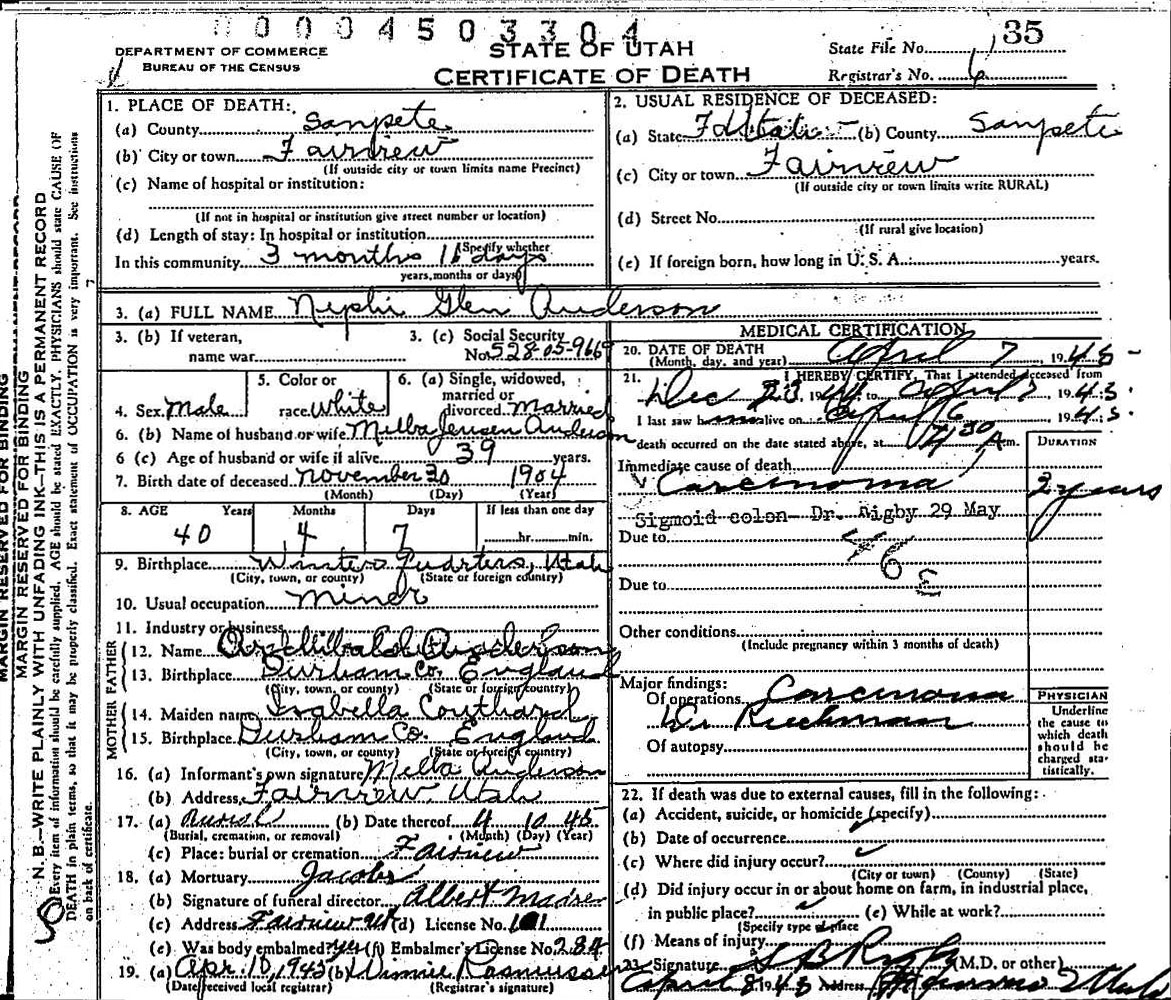 0004503304
DEPARTMENT OF COMMERCE
BUREAU OF THE CENSUS
STATE OF UTAH
CERTIFICATE OF DEATH
State File No. 35
Registrar's No. 6
MARGIN RESERVED FOR BINDING
N. B.—WRITE PLAINLY WITH UNFADING INK—THIS IS A PERMANENT RECORD
Every item of information should be carefully supplied. AGE should be stated EXACTLY. PHYSICIANS should state CAUSE OF
DEATH in plain terms, so that it may be properly classified. Exact statement of OCCUPATION is very important. See instructions
on back of certificate.
1. PLACE OF DEATH:
(a) County Sanpete
(b) City or town Fairview
(If outside city or town limits name Precinct)
(c) Name of hospital or institution:
(If not in hospital or institution give street number or location)
(d) Length of stay: In hospital or institution
(Specify whether
In this community 3 months days
years, months or days)
2. USUAL RESIDENCE OF DECEASED:
(a) State Utah (b) County Sanpete
(c) City or town Fairview
(If outside city or town limits write RURAL)
(d) Street No.
(If rural give location)
(e) If foreign born, how long in U. S. A.: years.
3. (a) FULL NAME Nephi Glen Anderson
3. (b) If veteran,
name war
3. (c) Social Security
No. 528-05-9669
4. Sex Male
5. Color or
race White
6. (a) Single, widowed,
married or
divorced Married
6. (b) Name of husband or wife Melba Jensen Anderson
6 (c) Age of husband or wife if alive 39 years.
7. Birth date of deceased November 30 1904
(Month) (Day) (Year)
8. AGE Years Months Days If less than one day
40 4 7 hr. min.
9. Birthplace Winter Quarters, Utah
(City, town, or county) (State or foreign country)
10. Usual occupation Miner
11. Industry or business
FATHER
12. Name Archibald Anderson
13. Birthplace Durham Co. England
(City, town, or county) (State or foreign country)
MOTHER
14. Maiden name Isabella Coulthard
15. Birthplace Durham Co. England
(City, town, or county) (State or foreign country)
16. (a) Informant's own signature Melba Anderson
(b) Address Fairview, Utah
17. (a) Burial (b) Date thereof 4 10 45
(Burial, cremation, or removal) (Month) (Day) (Year)
(c) Place: burial or cremation Fairview
18. (a) Mortuary Jacobs
(b) Signature of funeral director Albert
(c) Address Fairview Ut (d) License No.
(e) Was body embalmed? yes (f) Embalmer's License No. 284
19. (a) Apr. 10, 1945 (b) Vinnie Rasmussen
(Date received local registrar) (Registrar's signature)
MEDICAL CERTIFICATION
20. DATE OF DEATH
(Month, day, and year) April 7, 1945
21. I HEREBY CERTIFY, That I attended deceased from
Dec 23, 1944 to April 7 1945
I last saw h alive on April 6 1945
death occurred on the date stated above, at 4:30 A m.
DURATION
Immediate cause of death
Carcinoma 2 years
Sigmoid colon- Dr. Rigby 29 May
Due to
46 E
Due to
Other conditions
(Include pregnancy within 3 months of death)
Major findings:
Of operations Carcinoma
Of autopsy
PHYSICIAN
Underline
the cause to
which death
should be
charged sta-
tistically.
22. If death was due to external causes, fill in the following:
(a) Accident, suicide, or homicide (specify)
(b) Date of occurrence
(c) Where did injury occur?
(City or town) (County) (State)
(d) Did injury occur in or about home on farm, in industrial place,
in public place? (e) While at work?
(Specify type of place
(f) Means of injury
23. Signature S B Rigby (M.D. or other)
April 8 1945 Address Utah